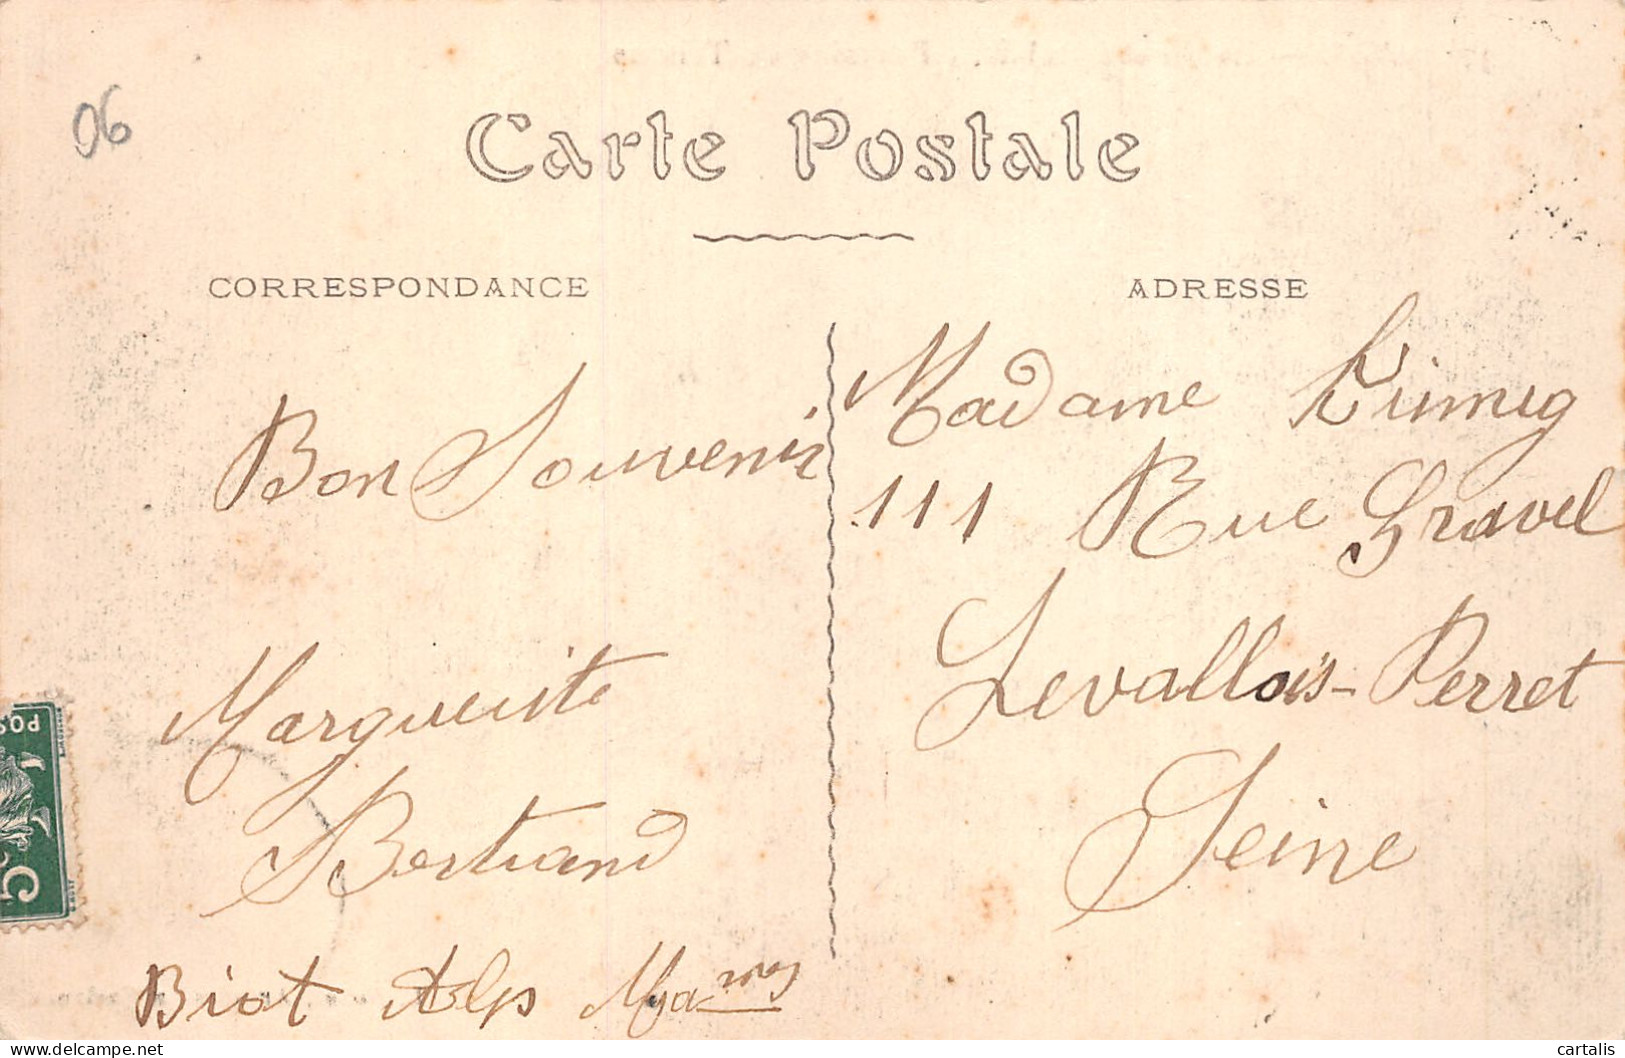 06
Carte Postale
CORRESPONDANCE
Bon Souvenir
Marguerite
Bertrand
Biot Alps M
ADRESSE
Madame
111 Rue Gravel
Levallois-Perret
Seine
POS
5
cartalis
delcampe.net